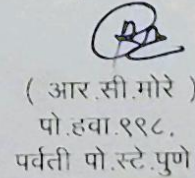 ( आर.सी.मोरे )
पो.हवा.९९८,
पर्वती पो.स्टे.पुणे